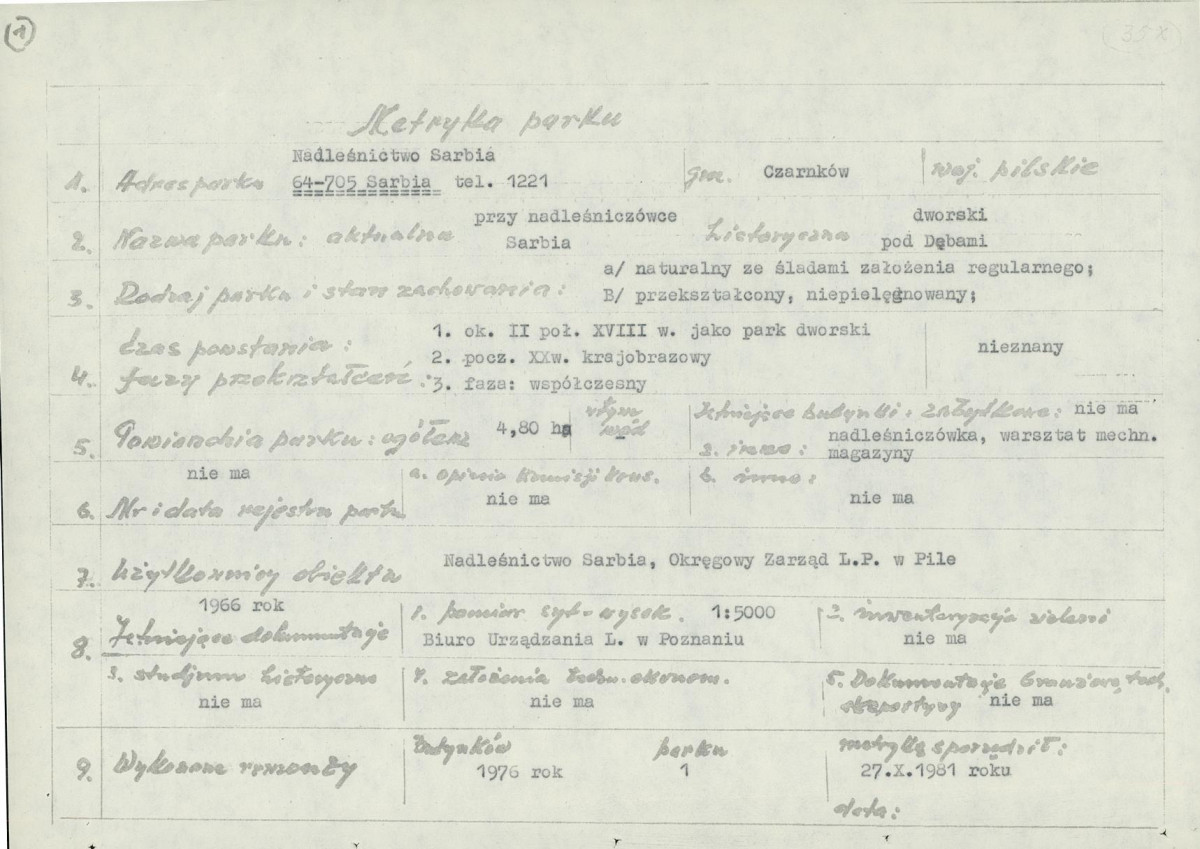 1
35 x
Metryka parku
Nadleśnictwo Sarbia
1. Adres parku 64-705 Sarbia tel. 1221 gm. Czarnków woj. pilskie
przy nadleśniczówce dworski
2. Nazwa parku: aktualna Sarbia historyczna pod Dębami
a/ naturalny ze śladami założenia regularnego;
3. Rodzaj parku i stan zachowania: B/ przekształcony, niepielęgnowany;
1. ok. II poł. XVIII w. jako park dworski
czas powstania: nieznany
2. pocz. XXw. krajobrazowy
4. fazy przekształceń: 3. faza: współczesny
Istniejące budynki: zabytkowe: nie ma
5. Powierzchnia parku: ogółem 4,80 ha w tym wód
2. inne: nadleśniczówka, warsztat mechn.
magazyny
nie ma a. opinia Komisji kons. b. inne:
nie ma nie ma
6. Nr i data rejestru park
7. Użytkownicy obiektu Nadleśnictwo Sarbia, Okręgowy Zarząd L.P. w Pile
1966 rok 1. pomiar syt-wysok. 1:5000 2. inwentaryzacja zieleni
8. Istniejące dokumentacje Biuro Urządzania L. w Poznaniu nie ma
3. studjum historyczne 4. założenia techn. ekonom. 5. Dokumentacje branżowe, tech.
nie ma nie ma nie ma
budynków parku metrykę sporządził:
9. Wykonane remonty 1976 rok 1 27.X.1981 roku
data: